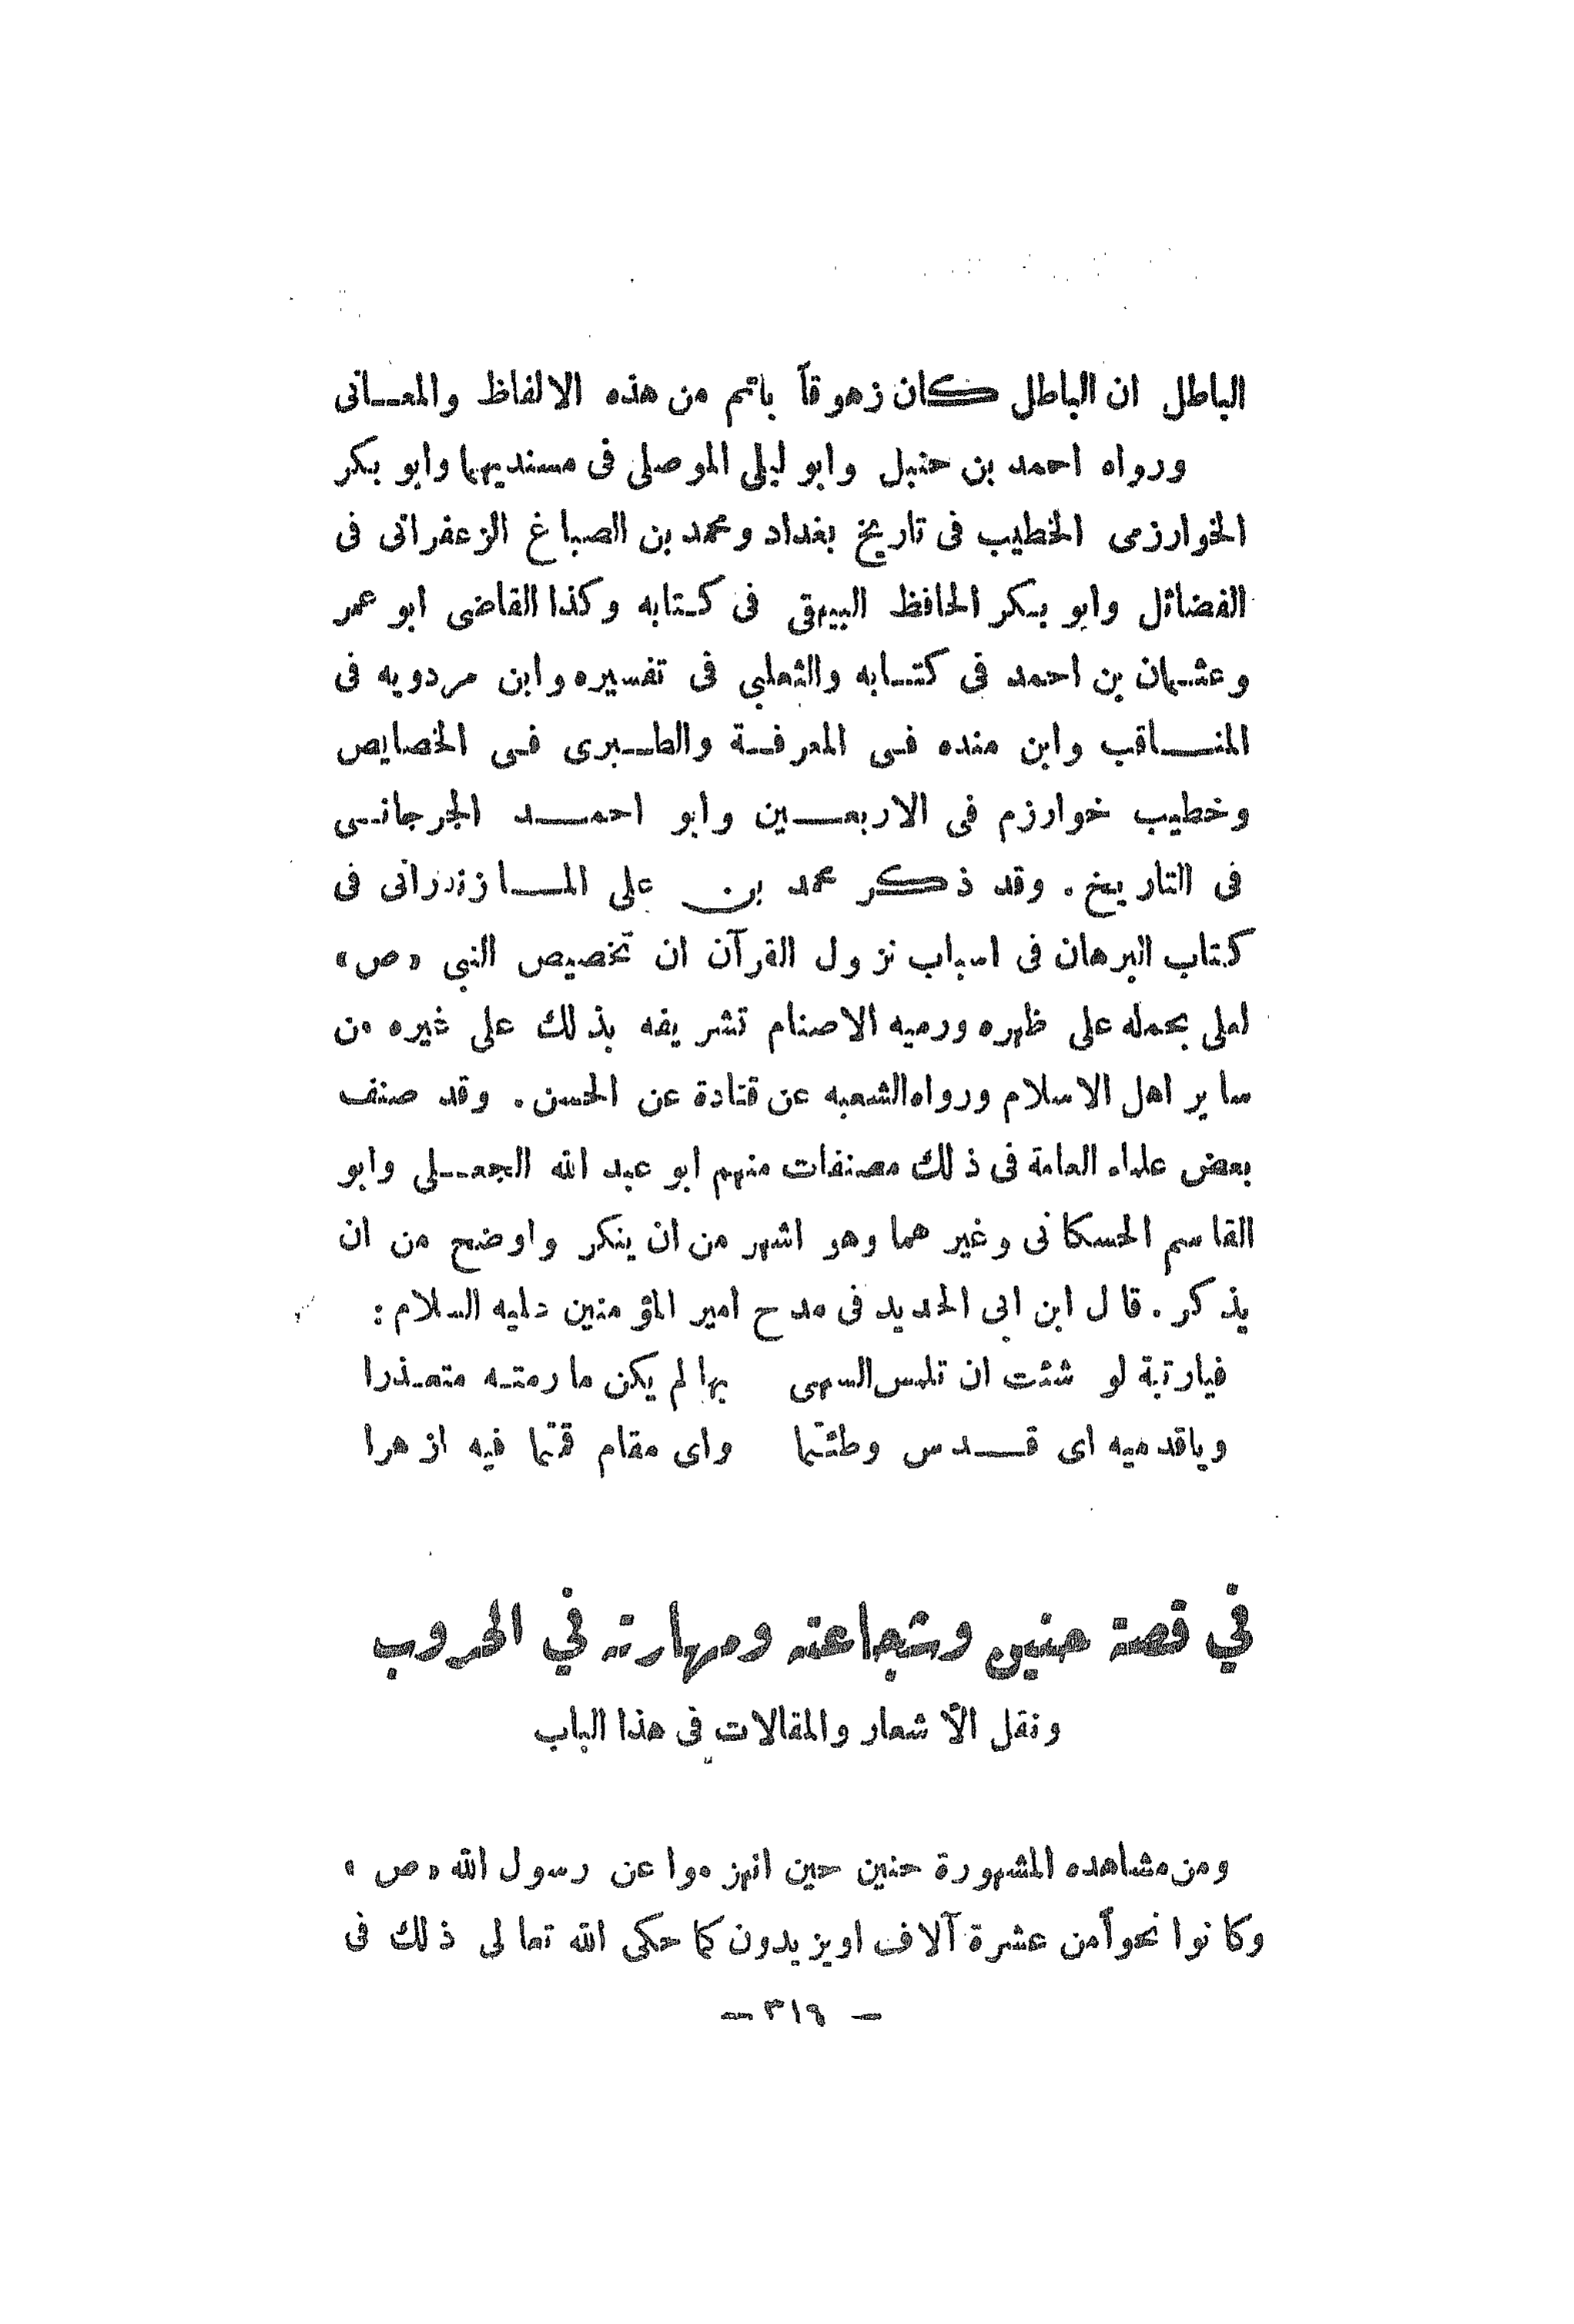 الباطل ان الباطل كان زهوقاً باتم من هذه الالفاظ والمعانى
ورواه احمد بن حنبل وابو ليلى الموصلى فى مسنديهما وابو بكر
الخوارزمى الخطيب فى تاريخ بغداد ومحمد بن الصباغ الزعفرانى فى
الفضائل وابو بكر الحافظ البيهقى فى كتابه وكذا القاضى ابو عمر
وعثمان بن احمد فى كتابه والثعلبي فى تفسيره وابن مردويه فى
المناقب وابن منده فى المعرفة والطبرى فى الخصايص
وخطيب خوارزم فى الاربعين وابو احمد الجرجانى
فى التاريخ . وقد ذكر محمد بن على المازندرانى فى
كتاب البرهان فى اسباب نزول القرآن ان تخصيص النبي «ص»
لعلى بحمله على ظهره ورميه الاصنام تشريفه بذلك على غيره من
ساير اهل الاسلام ورواه الشعبه عن قتادة عن الحسن . وقد صنف
بعض علماء العامة فى ذلك مصنفات منهم ابو عبد الله الجعلى وابو
القاسم الحسكانى وغيرهما وهو اشهر من ان ينكر واوضح من ان
يذكر . قال ابن ابى الحديد فى مدح امير المؤمنين عليه السلام :
فيارتبة لو شئت ان تلمس السهى بها لم يكن مارمته متعذرا
وياقدميه اى قدس وطئتما واى مقام قمتما فيه ازهرا
في قصة حنين وشجاعته ومهارته في الحروب
ونقل الأشعار والمقالات فى هذا الباب
ومن مشاهده المشهورة حنين حين انهزموا عن رسول الله «ص»
وكانوا نحواً من عشرة آلاف اويزيدون كما حكى الله تعالى ذلك فى
— ٣١٩ —